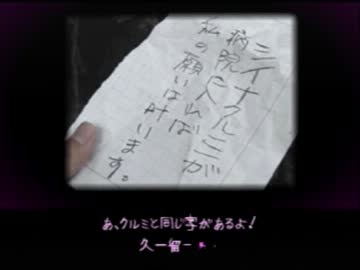 シイナクルミが
病院に入れば
私の願いは叶います。
あ、クルミと同じ字があるよ!
久一留一